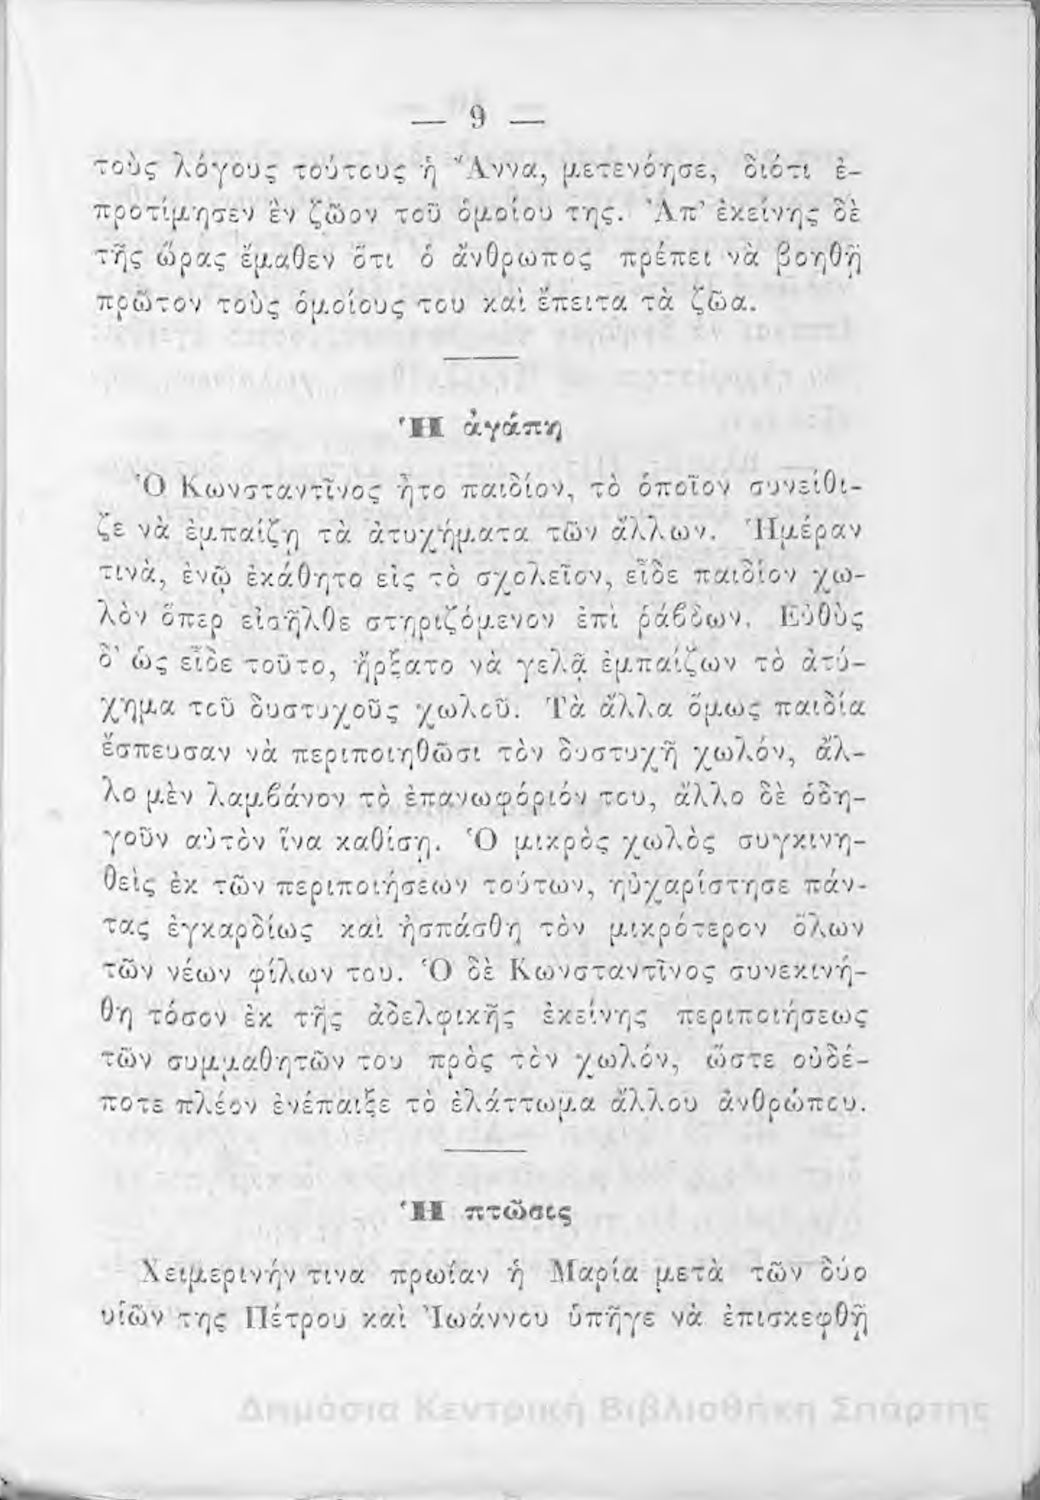 — 9 —
τοὺς λόγους τούτους ἡ Ἄννα, μετενόησε, διότι ἐ-
προτίμησεν ἐν ζῶον τοῦ ὁμοίου της. Ἀπ’ ἐκείνης δὲ
τῆς ὥρας ἔμαθεν ὅτι ὁ ἄνθρωπος πρέπει νὰ βοηθῇ
πρῶτον τοὺς ὁμοίους του καὶ ἔπειτα τὰ ζῶα.
Ἡ ἀγάπη
Ὁ Κωνσταντῖνος ἦτο παιδίον, τὸ ὁποῖον συνείθι-
ζε νὰ ἐμπαίζῃ τὰ ἀτυχήματα τῶν ἄλλων. Ἡμέραν
τινὰ, ἐνῷ ἐκάθητο εἰς τὸ σχολεῖον, εἶδε παιδίον χω-
λὸν ὅπερ εἰσῆλθε στηριζόμενον ἐπὶ ῥάβδων. Εὐθὺς
δ’ ὡς εἶδε τοῦτο, ἤρξατο νὰ γελᾷ ἐμπαίζων τὸ ἀτύ-
χημα τοῦ δυστυχοῦς χωλοῦ. Τὰ ἄλλα ὅμως παιδία
ἔσπευσαν νὰ περιποιηθῶσι τὸν δυστυχῆ χωλόν, ἄλ-
λο μὲν λαμβάνον τὸ ἐπανωφόριόν του, ἄλλο δὲ ὁδη-
γοῦν αὐτὸν ἵνα καθίσῃ. Ὁ μικρὸς χωλὸς συγκινη-
θεὶς ἐκ τῶν περιποιήσεων τούτων, ηὐχαρίστησε πάν-
τας ἐγκαρδίως καὶ ἠσπάσθη τὸν μικρότερον ὅλων
τῶν νέων φίλων του. Ὁ δὲ Κωνσταντῖνος συνεκινή-
θη τόσον ἐκ τῆς ἀδελφικῆς ἐκείνης περιποιήσεως
τῶν συμμαθητῶν του πρὸς τὸν χωλόν, ὥστε οὐδέ-
ποτε πλέον ἐνέπαιξε τὸ ἐλάττωμα ἄλλου ἀνθρώπου.
Ἡ πτῶσις
Χειμερινήν τινα πρωίαν ἡ Μαρία μετὰ τῶν δύο
υἱῶν της Πέτρου καὶ Ἰωάννου ὑπῆγε νὰ ἐπισκεφθῇ
Δημόσια Κεντρική Βιβλιοθήκη Σπάρτης